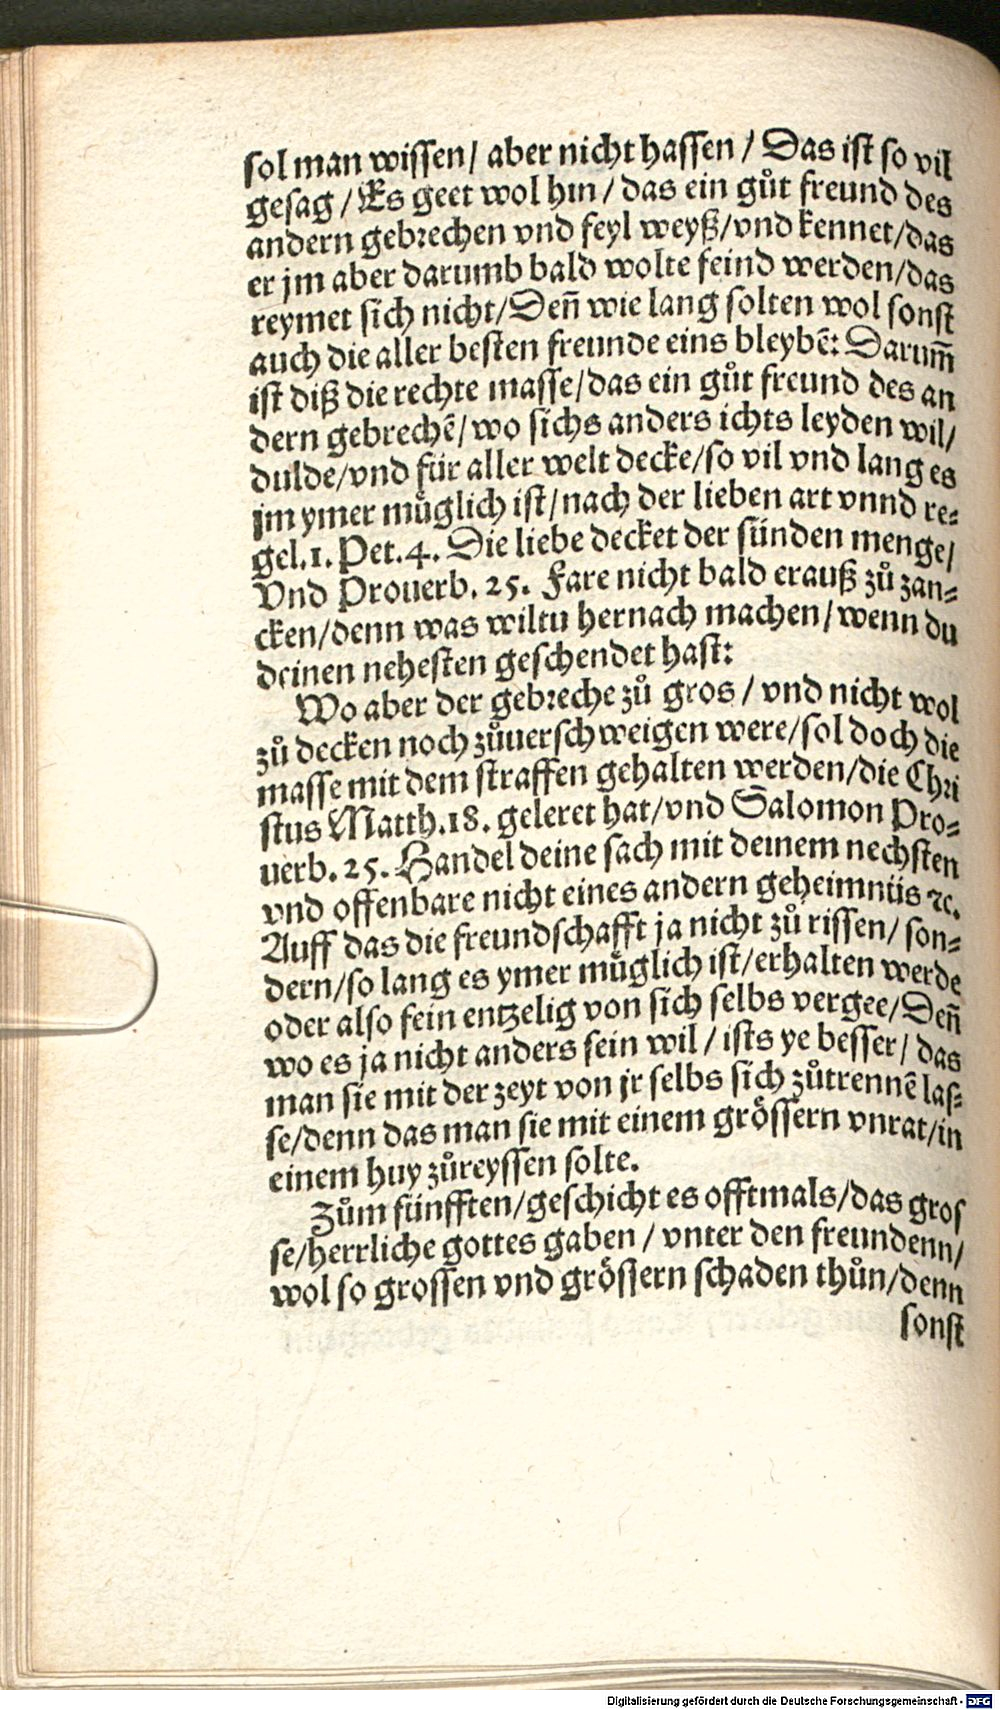 sol man wissen/ aber nicht hassen / Das ist so vil
gesag / Es geet wol hin / das ein gůt freund des
andern gebrechen vnd feyl weyß/vnd kennet/das
er jm aber darumb bald wolte feind werden/das
reymet sich nicht/Deñ wie lang solten wol sonst
auch die aller besten freunde eins bleybẽ: Darum̃
ist diß die rechte masse/das ein gůt freund des an
dern gebrechẽ/wo sichs anders ichts leyden wil/
dulde/vnd für aller welt decke/so vil vnd lang es
jm ymer müglich ist/nach der lieben art vnnd re-
gel.1. Pet.4. Die liebe decket der sünden menge/
Vnd Prouerb. 25. Fare nicht bald erauß zů zan-
cken/denn was wiltu hernach machen/wenn du
deinen nehesten geschendet hast:
Wo aber der gebreche zů gros / vnd nicht wol
zů decken noch zůuerschweigen were/sol doch die
masse mit dem straffen gehalten werden/die Chri
stus Matth.18. geleret hat/vnd Salomon Pro-
uerb. 25. Handel deine sach mit deinem nechsten
vnd offenbare nicht eines andern geheimnüs ⁊c.
Auff das die freundschafft ja nicht zů rissen/ son-
dern/so lang es ymer müglich ist/erhalten werde
oder also fein entzelig von sich selbs vergee/Deñ
wo es ja nicht anders sein wil / ists ye besser/ das
man sie mit der zeyt von jr selbs sich zůtrennẽ las-
se/denn das man sie mit einem grössern vnrat/in
einem huy zůreyssen solte.
Zům fünfften/geschicht es offtmals/das gros
se/herrliche gottes gaben / vnter den freundenn/
wol so grossen vnd grössern schaden thůn/denn
sonst
Digitalisierung gefördert durch die Deutsche Forschungsgemeinschaft - DFG